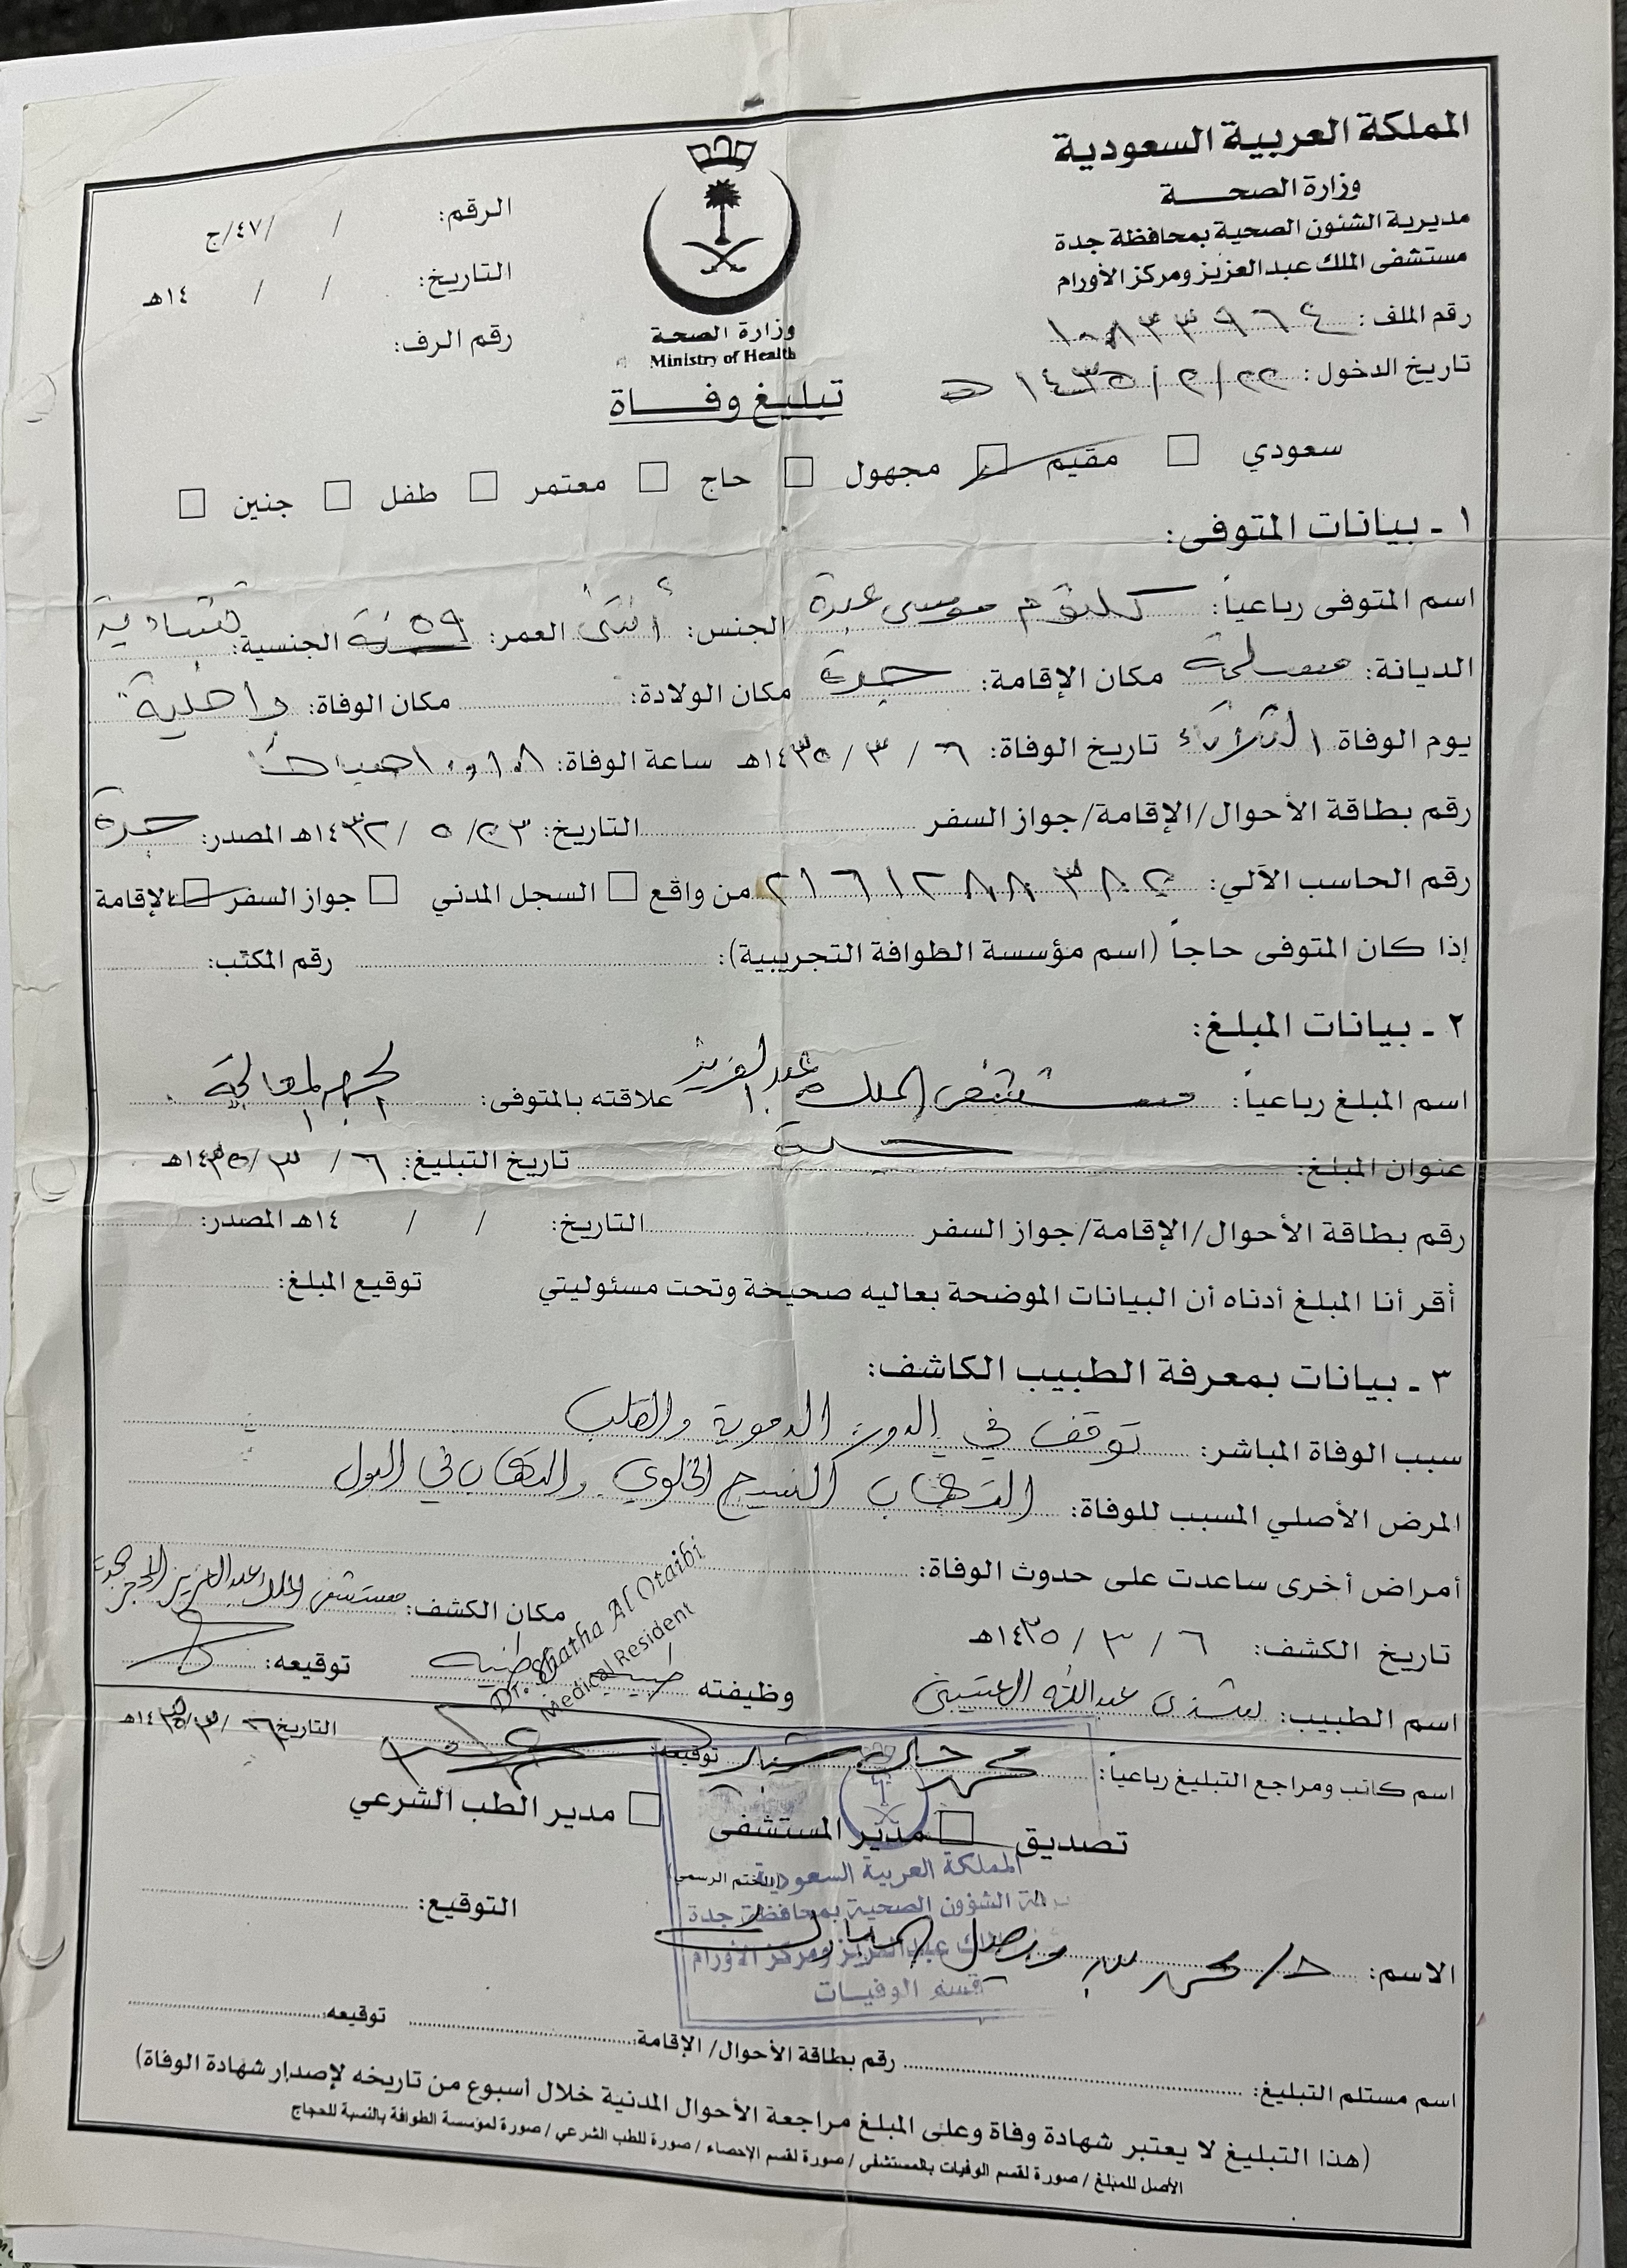 المملكة العربية السعودية
وزارة الصحــــة
مديرية الشئون الصحية بمحافظة جدة
مستشفى الملك عبدالعزيز ومركز الأورام
رقم الملف:
تاريخ الدخول: ٢٢/٢/١٤٣٥ هـ
الرقم: / /٤٧/ج
التاريخ: / / ١٤هـ
رقم الرف:
وزارة الصحة
Ministry of Health
تبليغ وفــــاة
سعودي □ مقيم □ مجهول □ حاج □ معتمر □ طفل □ جنين □
١ ـ بيانات المتوفى:
اسم المتوفى رباعياً: كلثوم موسى عبده الجنس: أنثى العمر: ٥٩ سنة الجنسية: تشادية
الديانة: مسلمة مكان الإقامة: جدة مكان الولادة: مكان الوفاة: داخلية
يوم الوفاة الثلاثاء تاريخ الوفاة: ٦ / ٣ / ١٤٣٥هـ ساعة الوفاة: صباحاً
رقم بطاقة الأحوال/الإقامة/جواز السفر التاريخ: ٢٣/ ٥ /١٤٣٢هـ المصدر: جدة
رقم الحاسب الآلي: ٢١٦١٢٨٨٣٨٤ من واقع □ السجل المدني □ جواز السفر □ الإقامة
إذا كان المتوفى حاجاً (اسم مؤسسة الطوافة التجريبية): رقم المكتب:
٢ ـ بيانات المبلغ:
اسم المبلغ رباعياً: مستشفى الملك عبدالعزيز علاقته بالمتوفى: الجهة المعالجة
عنوان المبلغ: جدة تاريخ التبليغ: ٦ / ٣ /١٤٣٥هـ
رقم بطاقة الأحوال/الإقامة/جواز السفر التاريخ: / / ١٤هـ المصدر:
أقر أنا المبلغ أدناه أن البيانات الموضحة بعاليه صحيحة وتحت مسئوليتي توقيع المبلغ:
٣ ـ بيانات بمعرفة الطبيب الكاشف:
سبب الوفاة المباشر: توقف في الدورة الدموية والقلب
المرض الأصلي المسبب للوفاة: التهاب النسيج الخلوي والتهاب في البول
أمراض أخرى ساعدت على حدوث الوفاة:
تاريخ الكشف: ٦ / ٣ / ١٤٣٥هـ مكان الكشف: مستشفى الملك عبدالعزيز بجدة
اسم الطبيب: شذى عبدالله العتيبي وظيفته طبيبة توقيعه:
Dr. Shatha Al Otaibi
Medical Resident
اسم كاتب ومراجع التبليغ رباعياً: محمد توقيعه: التاريخ ٦ /٣/١٤٣٥هـ
تصديق □ مدير المستشفى □ مدير الطب الشرعي
(الختم الرسمي)
المملكة العربية السعودية
الشؤون الصحية بمحافظة جدة
عبدالعزيز ومركز الأورام
قسم الوفيـات
التوقيع:
الاسم: د/ محمد
اسم مستلم التبليغ: رقم بطاقة الأحوال/ الإقامة: توقيعه:
(هذا التبليغ لا يعتبر شهادة وفاة وعلى المبلغ مراجعة الأحوال المدنية خلال أسبوع من تاريخه لإصدار شهادة الوفاة)
الأصل للمبلغ / صورة لقسم الوفيات بالمستشفى / صورة لقسم الإحصاء / صورة للطب الشرعي / صورة لمؤسسة الطوافة بالنسبة للحجاج